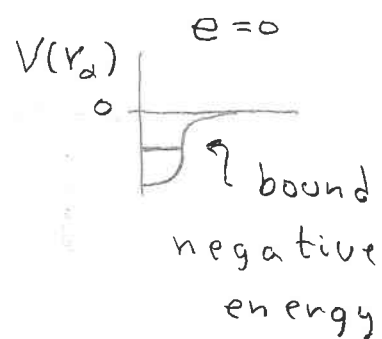 e = 0
V(r_α)
0
bound
negative
energy